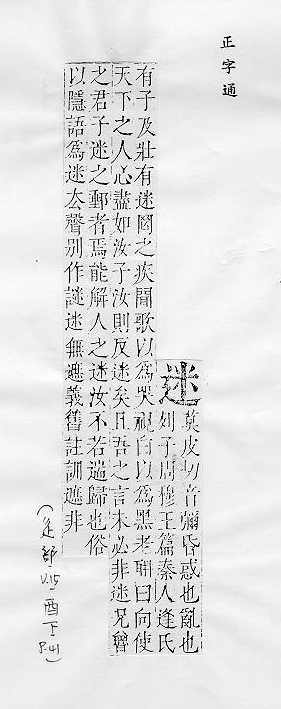 正字通
迷 莫皮切音彌昏惑也亂也
列子周穆王篇秦人逢氏
有子及壯有迷罔之疾聞歌以爲哭視白以爲黑老聃曰向使
天下之人心盡如汝子汝則反迷矣且吾之言未必非迷况魯
之君子迷之郵者焉能解人之迷汝不若遄歸也俗
以隱語爲迷去聲别作謎迷無遮義舊註訓遮非
(辵部 V.15 酉下 P.41)